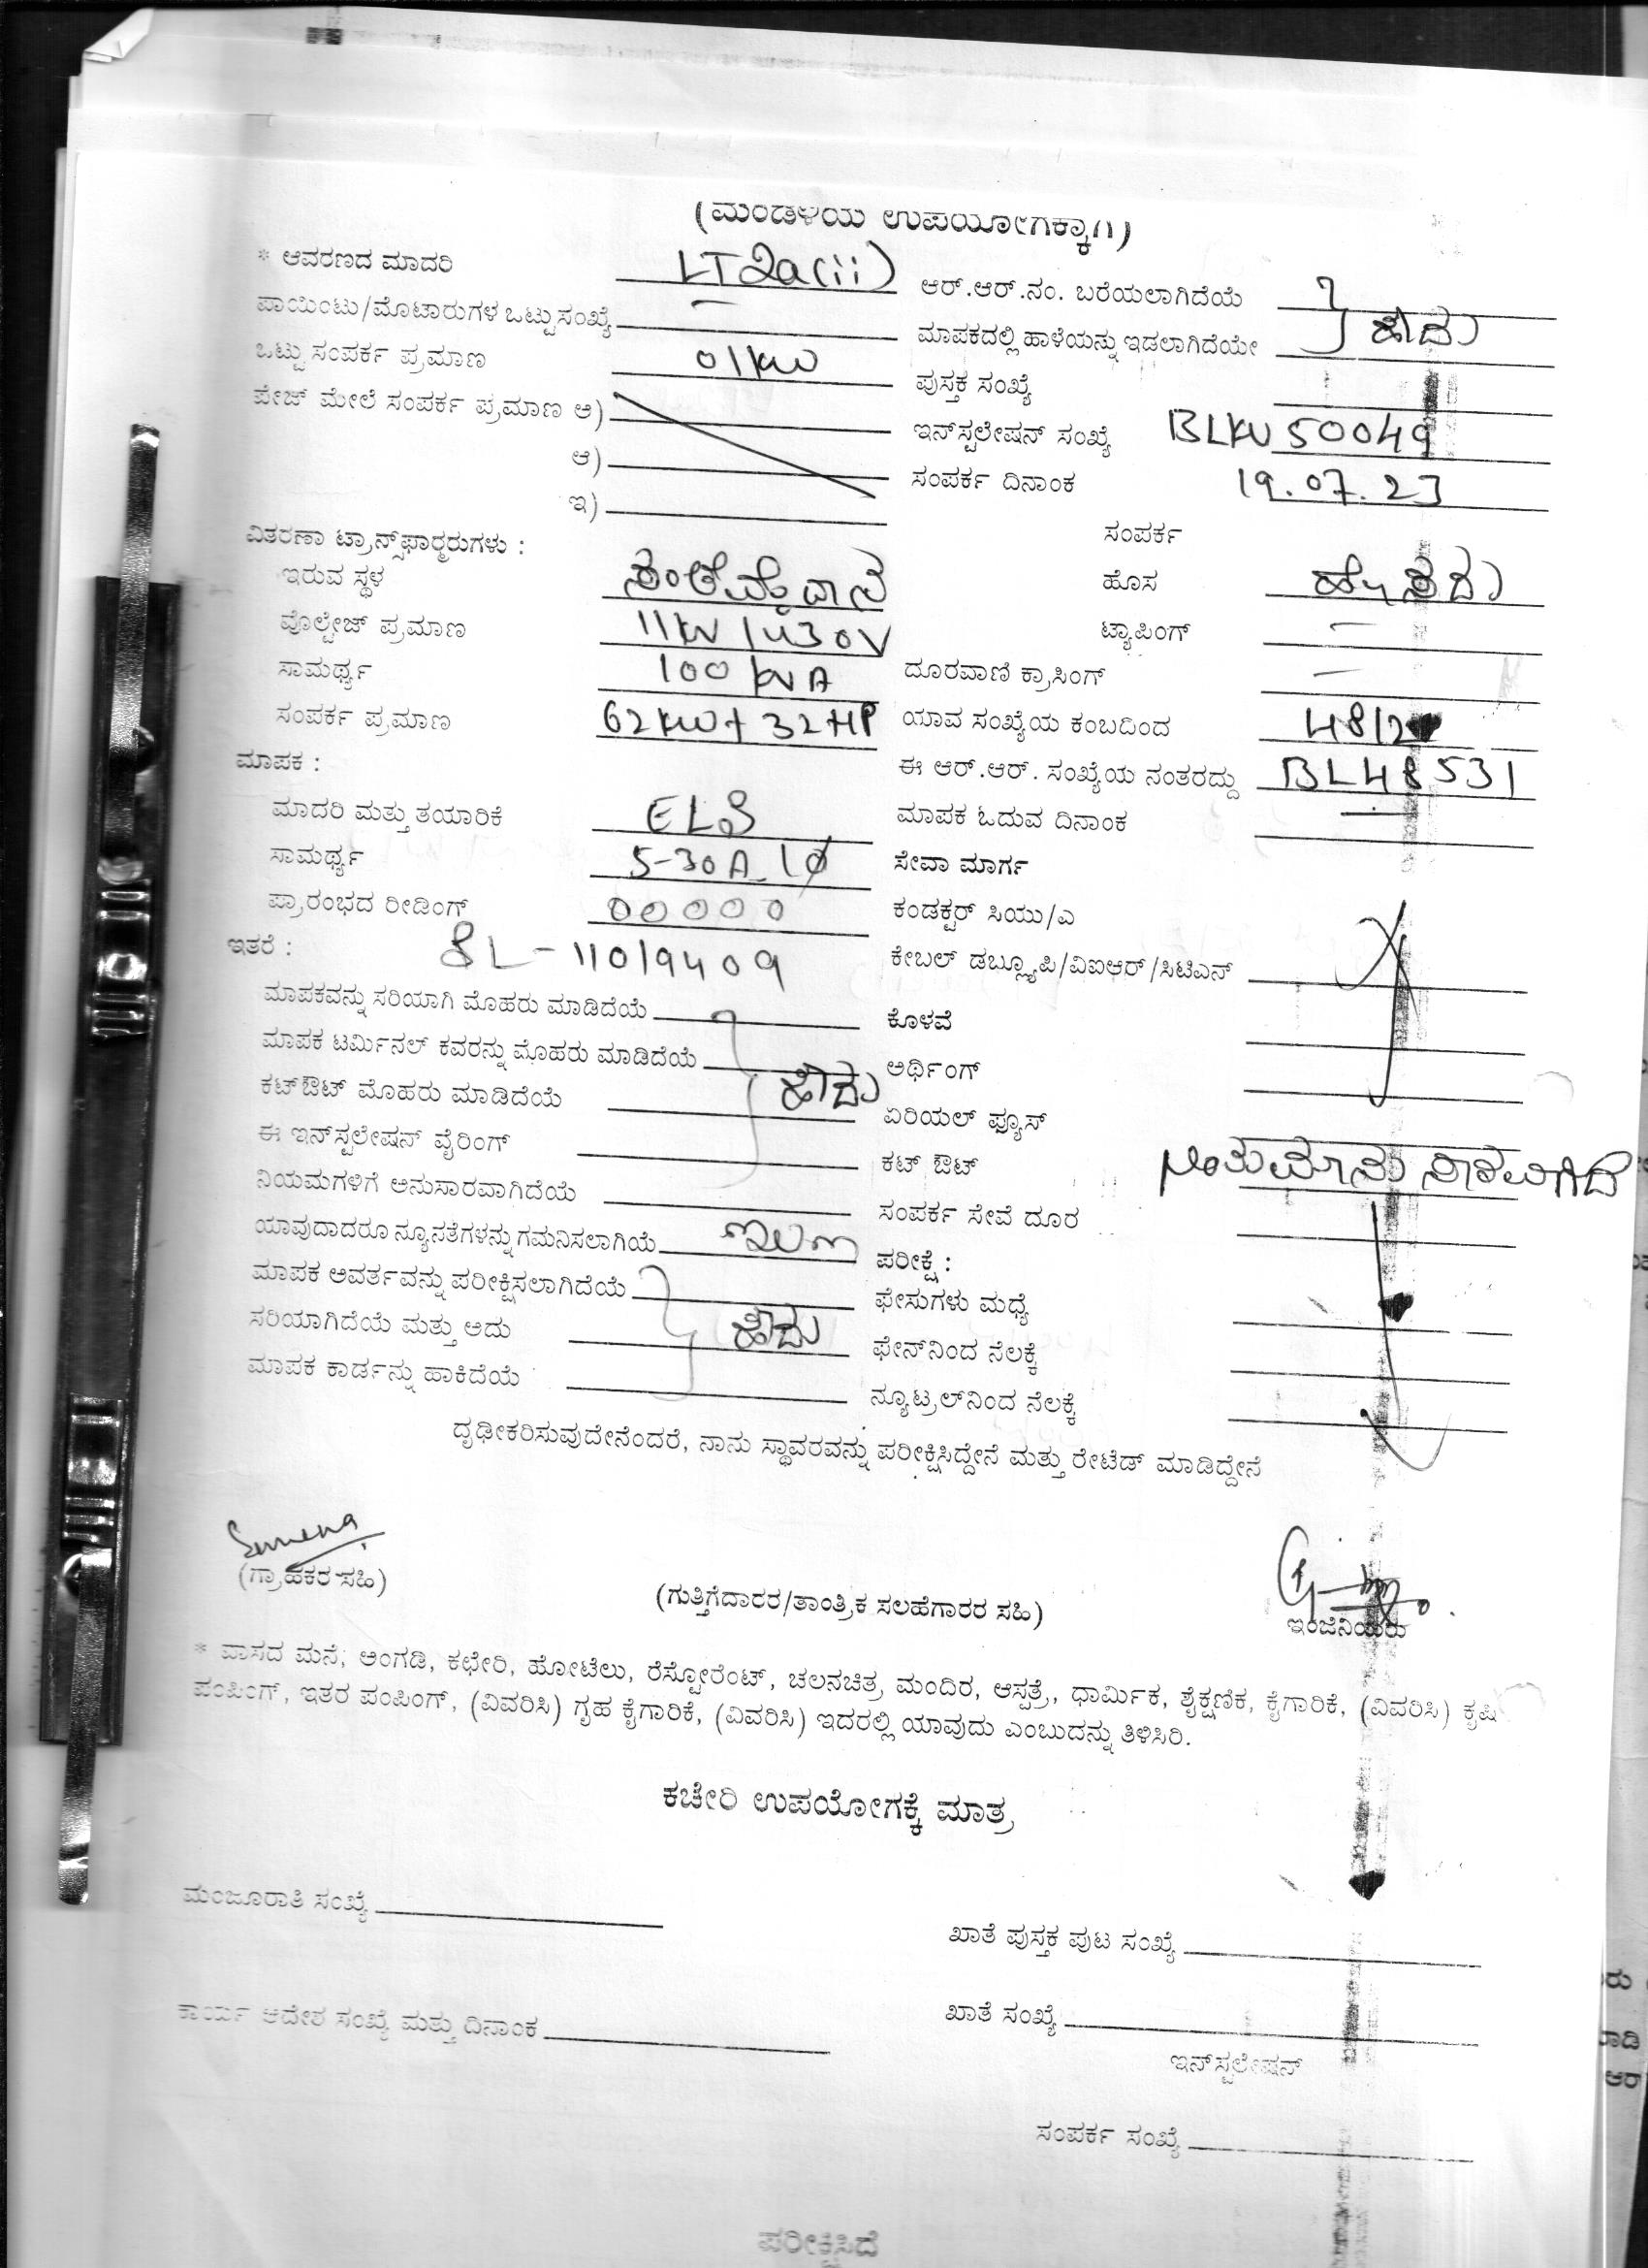 (ಮಂಡಳಿಯ ಉಪಯೋಗಕ್ಕಾಗಿ)
* ಆವರಣದ ಮಾದರಿ LT2a(ii) ಆರ್.ಆರ್.ನಂ. ಬರೆಯಲಾಗಿದೆಯೆ
ಪಾಯಿಂಟು/ಮೊಟಾರುಗಳ ಒಟ್ಟುಸಂಖ್ಯೆ — ಮಾಪಕದಲ್ಲಿ ಹಾಳೆಯನ್ನು ಇಡಲಾಗಿದೆಯೇ ಹೌದು
ಒಟ್ಟು ಸಂಪರ್ಕ ಪ್ರಮಾಣ 01kw ಪುಸ್ತಕ ಸಂಖ್ಯೆ
ಪೇಜ್ ಮೇಲೆ ಸಂಪರ್ಕ ಪ್ರಮಾಣ ಅ) ಇನ್‌ಸ್ಟಲೇಷನ್ ಸಂಖ್ಯೆ BLKW50049
ಆ) ಸಂಪರ್ಕ ದಿನಾಂಕ 19.07.23
ಇ) ಸಂಪರ್ಕ
ವಿತರಣಾ ಟ್ರಾನ್ಸ್‌ಫಾರ್‍ಮರುಗಳು :
ಇರುವ ಸ್ಥಳ ಸಂತೆಮೈದಾನ ಹೊಸ ಹೊಸದು
ವೊಲ್ಟೇಜ್ ಪ್ರಮಾಣ 11kv/430V ಟ್ಯಾಪಿಂಗ್ —
ಸಾಮರ್ಥ್ಯ 100 kvA ದೂರವಾಣಿ ಕ್ರಾಸಿಂಗ್ —
ಸಂಪರ್ಕ ಪ್ರಮಾಣ 62kw+32HP ಯಾವ ಸಂಖ್ಯೆಯ ಕಂಬದಿಂದ 48/2
ಮಾಪಕ : ಈ ಆರ್.ಆರ್. ಸಂಖ್ಯೆಯ ನಂತರದ್ದು BL48531
ಮಾದರಿ ಮತ್ತು ತಯಾರಿಕೆ ELS ಮಾಪಕ ಓದುವ ದಿನಾಂಕ —
ಸಾಮರ್ಥ್ಯ 5-30A 1ø ಸೇವಾ ಮಾರ್ಗ
ಪ್ರಾರಂಭದ ರೀಡಿಂಗ್ 00000 ಕಂಡಕ್ಟರ್ ಸಿಯು/ಎ
ಇತರೆ : SL-11019409 ಕೇಬಲ್ ಡಬ್ಲ್ಯೂಪಿ/ವಿಐಆರ್/ಸಿಟಿಎನ್
ಮಾಪಕವನ್ನು ಸರಿಯಾಗಿ ಮೊಹರು ಮಾಡಿದೆಯೆ ಕೊಳವೆ
ಮಾಪಕ ಟರ್ಮಿನಲ್ ಕವರನ್ನು ಮೊಹರು ಮಾಡಿದೆಯೆ ಹೌದು ಅರ್ಥಿಂಗ್
ಕಟ್‌ಔಟ್ ಮೊಹರು ಮಾಡಿದೆಯೆ ಏರಿಯಲ್ ಫ್ಯೂಸ್
ಈ ಇನ್‌ಸ್ಟಲೇಷನ್ ವೈರಿಂಗ್ ಕಟ್ ಔಟ್
ನಿಯಮಗಳಿಗೆ ಅನುಸಾರವಾಗಿದೆಯೆ ಸಂಪರ್ಕ ಸೇವೆ ದೂರ
ಯಾವುದಾದರೂ ನ್ಯೂನತೆಗಳನ್ನು ಗಮನಿಸಲಾಗಿಯೆ ಇಲ್ಲ ಪರೀಕ್ಷೆ :
ಮಾಪಕ ಅವರ್ತವನ್ನು ಪರೀಕ್ಷಿಸಲಾಗಿದೆಯೆ ಫೇಸುಗಳು ಮಧ್ಯೆ
ಸರಿಯಾಗಿದೆಯೆ ಮತ್ತು ಅದು ಹೌದು ಫೇನ್‌ನಿಂದ ನೆಲಕ್ಕೆ
ಮಾಪಕ ಕಾರ್ಡನ್ನು ಹಾಕಿದೆಯೆ ನ್ಯೂಟ್ರಲ್‌ನಿಂದ ನೆಲಕ್ಕೆ
ದೃಢೀಕರಿಸುವುದೇನೆಂದರೆ, ನಾನು ಸ್ಥಾವರವನ್ನು ಪರೀಕ್ಷಿಸಿದ್ದೇನೆ ಮತ್ತು ರೇಟೆಡ್ ಮಾಡಿದ್ದೇನೆ
(ಗ್ರಾಹಕರ ಸಹಿ) (ಗುತ್ತಿಗೆದಾರರ/ತಾಂತ್ರಿಕ ಸಲಹೆಗಾರರ ಸಹಿ) ಇಂಜಿನಿಯರು
* ವಾಸದ ಮನೆ, ಅಂಗಡಿ, ಕಛೇರಿ, ಹೋಟೆಲು, ರೆಸ್ಟೋರೆಂಟ್, ಚಲನಚಿತ್ರ ಮಂದಿರ, ಆಸ್ಪತ್ರೆ, ಧಾರ್ಮಿಕ, ಶೈಕ್ಷಣಿಕ, ಕೈಗಾರಿಕೆ, (ವಿವರಿಸಿ) ಕೃಷಿ
ಪಂಪಿಂಗ್, ಇತರ ಪಂಪಿಂಗ್, (ವಿವರಿಸಿ) ಗೃಹ ಕೈಗಾರಿಕೆ, (ವಿವರಿಸಿ) ಇದರಲ್ಲಿ ಯಾವುದು ಎಂಬುದನ್ನು ತಿಳಿಸಿರಿ.
ಕಚೇರಿ ಉಪಯೋಗಕ್ಕೆ ಮಾತ್ರ
ಮಂಜೂರಾತಿ ಸಂಖ್ಯೆ ಖಾತೆ ಪುಸ್ತಕ ಪುಟ ಸಂಖ್ಯೆ
ಕಾರ್ಯ ಆದೇಶ ಸಂಖ್ಯೆ ಮತ್ತು ದಿನಾಂಕ ಖಾತೆ ಸಂಖ್ಯೆ
ಇನ್‌ಸ್ಟಲೇಷನ್
ಸಂಪರ್ಕ ಸಂಖ್ಯೆ
ಪರೀಕ್ಷಿಸಿದೆ